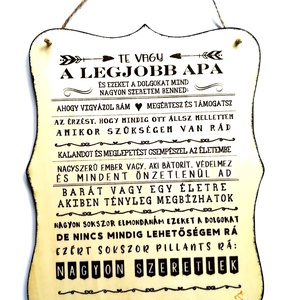 TE VAGY
A LEGJOBB APA
ÉS EZEKET A DOLGOKAT MIND
NAGYON SZERETEM BENNED:
AHOGY VIGYÁZOL RÁM ♥ MEGÉRTESZ ÉS TÁMOGATSZ
AZ ÉRZÉST, HOGY MINDIG OTT ÁLLSZ MELLETTEM
AMIKOR SZÜKSÉGEM VAN RÁD
KALANDOT ÉS MEGLEPETÉST CSEMPÉSZEL AZ ÉLETEMBE
NAGYSZERŰ EMBER VAGY, AKI BÁTORÍT, VÉDELMEZ
ÉS MINDENT ÖNZETLENÜL AD
BARÁT VAGY EGY ÉLETRE
AKIBEN TÉNYLEG MEGBÍZHATOK
NAGYON SOKSZOR ELMONDANÁM EZEKET A DOLGOKAT
DE NINCS MINDIG LEHETŐSÉGEM RÁ
EZÉRT SOKSZOR PILLANTS RÁ:
NAGYON SZERETLEK